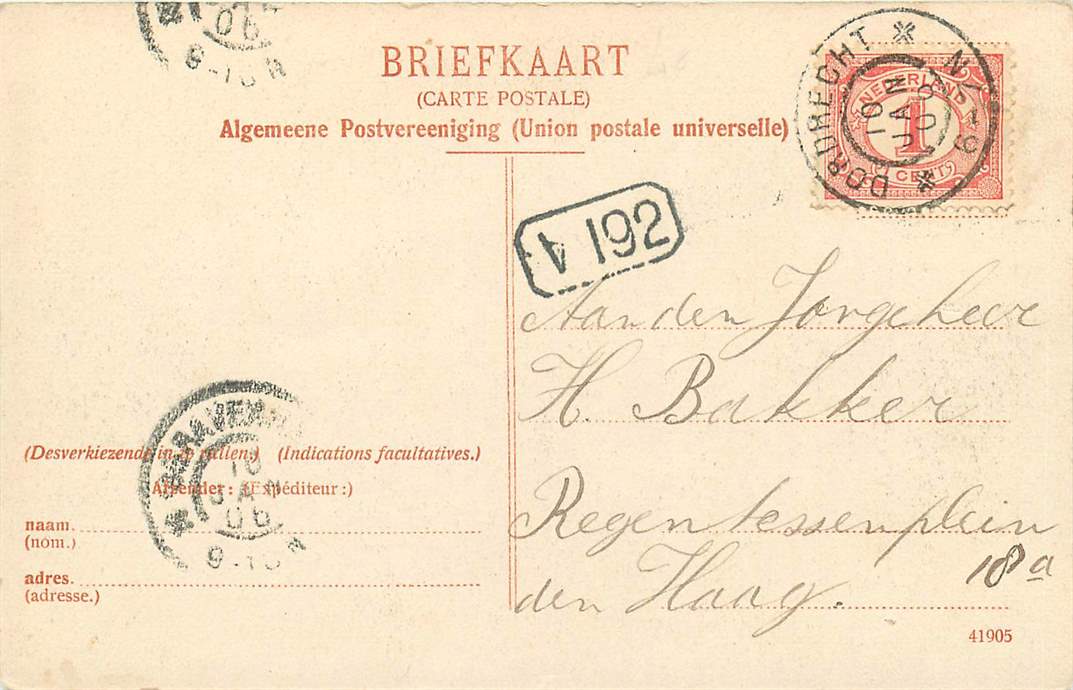 06
9-10N
BRIEFKAART
(CARTE POSTALE)
Algemeene Postvereeniging (Union postale universelle)
DORDRECHT
10
JAN
NEDERLAND
1
CENT
V 192
Aan den Jongeheer
H. Bakker
Regentessenplein
18a
den Haag.
10
JAN
06
9-10N
(Desverkiezende in te vullen:) (Indications facultatives.)
Afzender: (Expéditeur:)
naam.
(nom.)
adres.
(adresse.)
41905